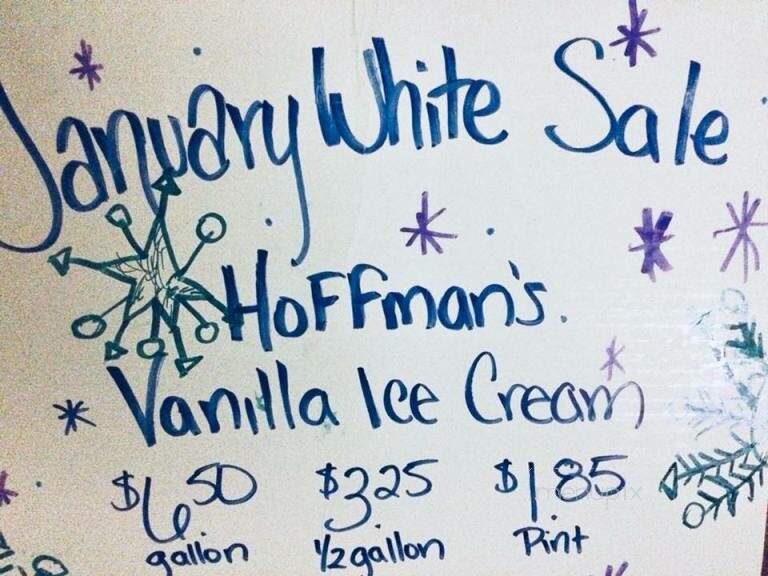 January White Sale
Hoffman's.
Vanilla Ice Cream
$6.50 $3.25 $1.85
gallon 1/2 gallon Pint
menupix